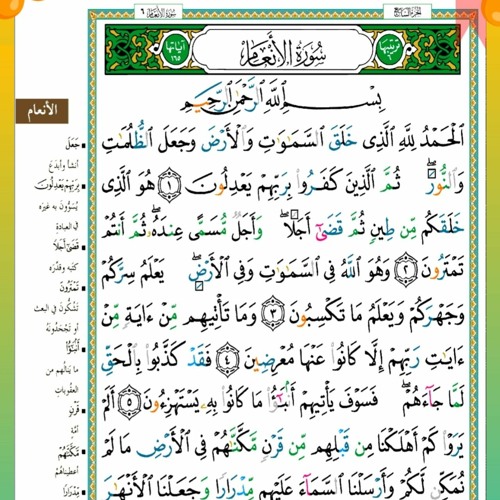 سورة الأنعام ٦
الجزء السابع
ترتيبها ٦
سُورَةُ الأَنْعَامِ
آياتها ١٦٥
بِسْمِ اللَّهِ الرَّحْمَنِ الرَّحِيمِ
ٱلْحَمْدُ لِلَّهِ ٱلَّذِى خَلَقَ ٱلسَّمَٰوَٰتِ وَٱلْأَرْضَ وَجَعَلَ ٱلظُّلُمَٰتِ
وَٱلنُّورَ ۖ ثُمَّ ٱلَّذِينَ كَفَرُوا۟ بِرَبِّهِمْ يَعْدِلُونَ ١ هُوَ ٱلَّذِى
خَلَقَكُم مِّن طِينٍ ثُمَّ قَضَىٰٓ أَجَلًا ۖ وَأَجَلٌ مُّسَمًّى عِندَهُۥ ۖ ثُمَّ أَنتُمْ
تَمْتَرُونَ ٢ وَهُوَ ٱللَّهُ فِى ٱلسَّمَٰوَٰتِ وَفِى ٱلْأَرْضِ ۖ يَعْلَمُ سِرَّكُمْ
وَجَهْرَكُمْ وَيَعْلَمُ مَا تَكْسِبُونَ ٣ وَمَا تَأْتِيهِم مِّنْ ءَايَةٍ مِّنْ
ءَايَٰتِ رَبِّهِمْ إِلَّا كَانُوا۟ عَنْهَا مُعْرِضِينَ ٤ فَقَدْ كَذَّبُوا۟ بِٱلْحَقِّ
لَمَّا جَآءَهُمْ ۖ فَسَوْفَ يَأْتِيهِمْ أَنۢبَٰٓؤُا۟ مَا كَانُوا۟ بِهِۦ يَسْتَهْزِءُونَ ٥ أَلَمْ
يَرَوْا۟ كَمْ أَهْلَكْنَا مِن قَبْلِهِم مِّن قَرْنٍ مَّكَّنَّٰهُمْ فِى ٱلْأَرْضِ مَا لَمْ
نُمَكِّن لَّكُمْ وَأَرْسَلْنَا ٱلسَّمَآءَ عَلَيْهِم مِّدْرَارًا وَجَعَلْنَا ٱلْأَنْهَٰرَ
الأنعام
جَعَلَ
أنشأ وأبدع
بِرَبِّهِمْ يَعْدِلُونَ
يُسَوُّونَ به غيره
في العبادة
قَضَىٰ أَجَلًا
كتبه وقدّره
تَمْتَرُونَ
تشكّون في البعث
أو تجحدونه
أَنۢبَٰٓؤُا۟
ما ينالهم من
العقوبات
قَرْنٍ
أمّة
مَّكَّنَّٰهُمْ
أعطيناهم
مِّدْرَارًا